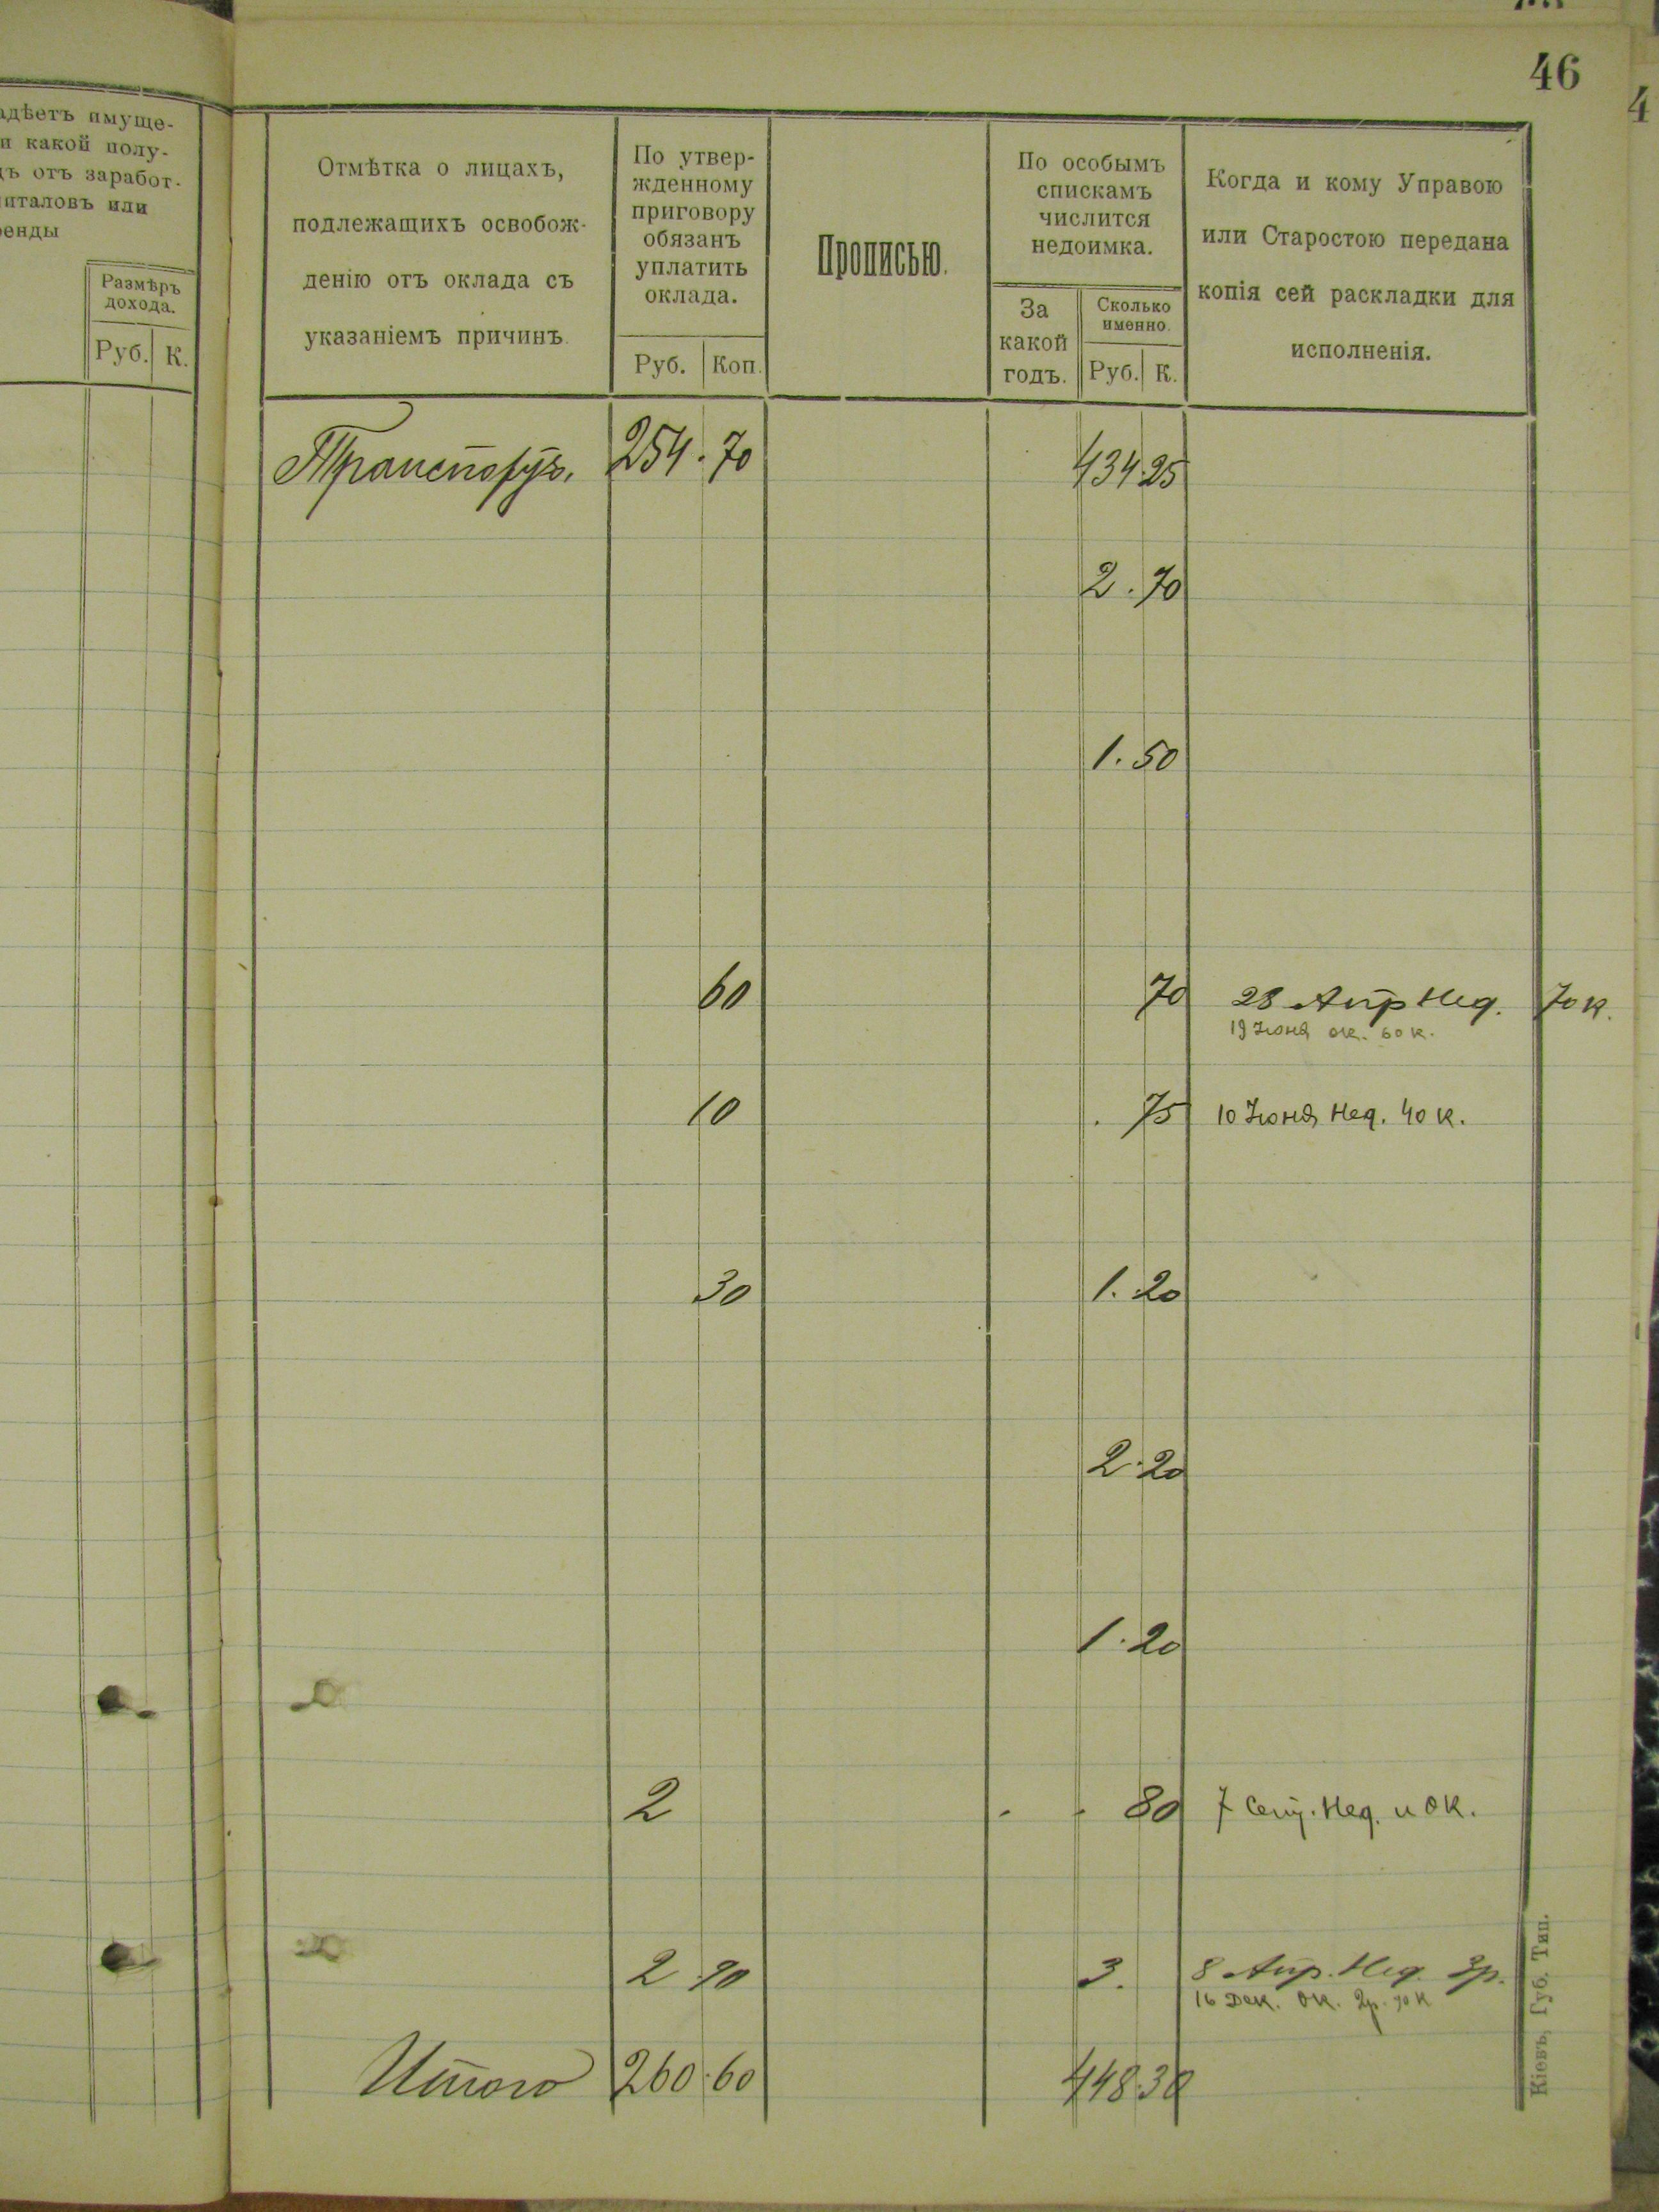 46
4
адѣетъ имуще-
и какой полу-
ъ отъ заработ-
питаловъ или
ренды
Размѣръ
дохода.
Руб. К.
Отмѣтка о лицахъ,
подлежащихъ освобож-
денію отъ оклада съ
указаніемъ причинъ.
По утвер-
жденному
приговору
обязанъ
уплатить
оклада.
Руб. Коп.
Прописью.
По особымъ
спискамъ
числится
недоимка.
За
какой
годъ.
Сколько
именно.
Руб. К.
Когда и кому Управою
или Старостою передана
копія сей раскладки для
исполненія.
Транспортъ. 254. 70 434.25
2. 70
1. 50
60 70 28 Апр Нед. 70 к.
19 Июня ок. 60 к.
10 . 75 10 Июня Нед. 40 к.
30 1. 20
2. 20
1. 20
2 - - 80 7 Сент. Нед. и ок.
2 90 3. 8 Апр. Нед. 3р.
16 Дек. ок. 2р. 90 к
Итого 260.60 448.30
Кіевъ, Губ. Тип.